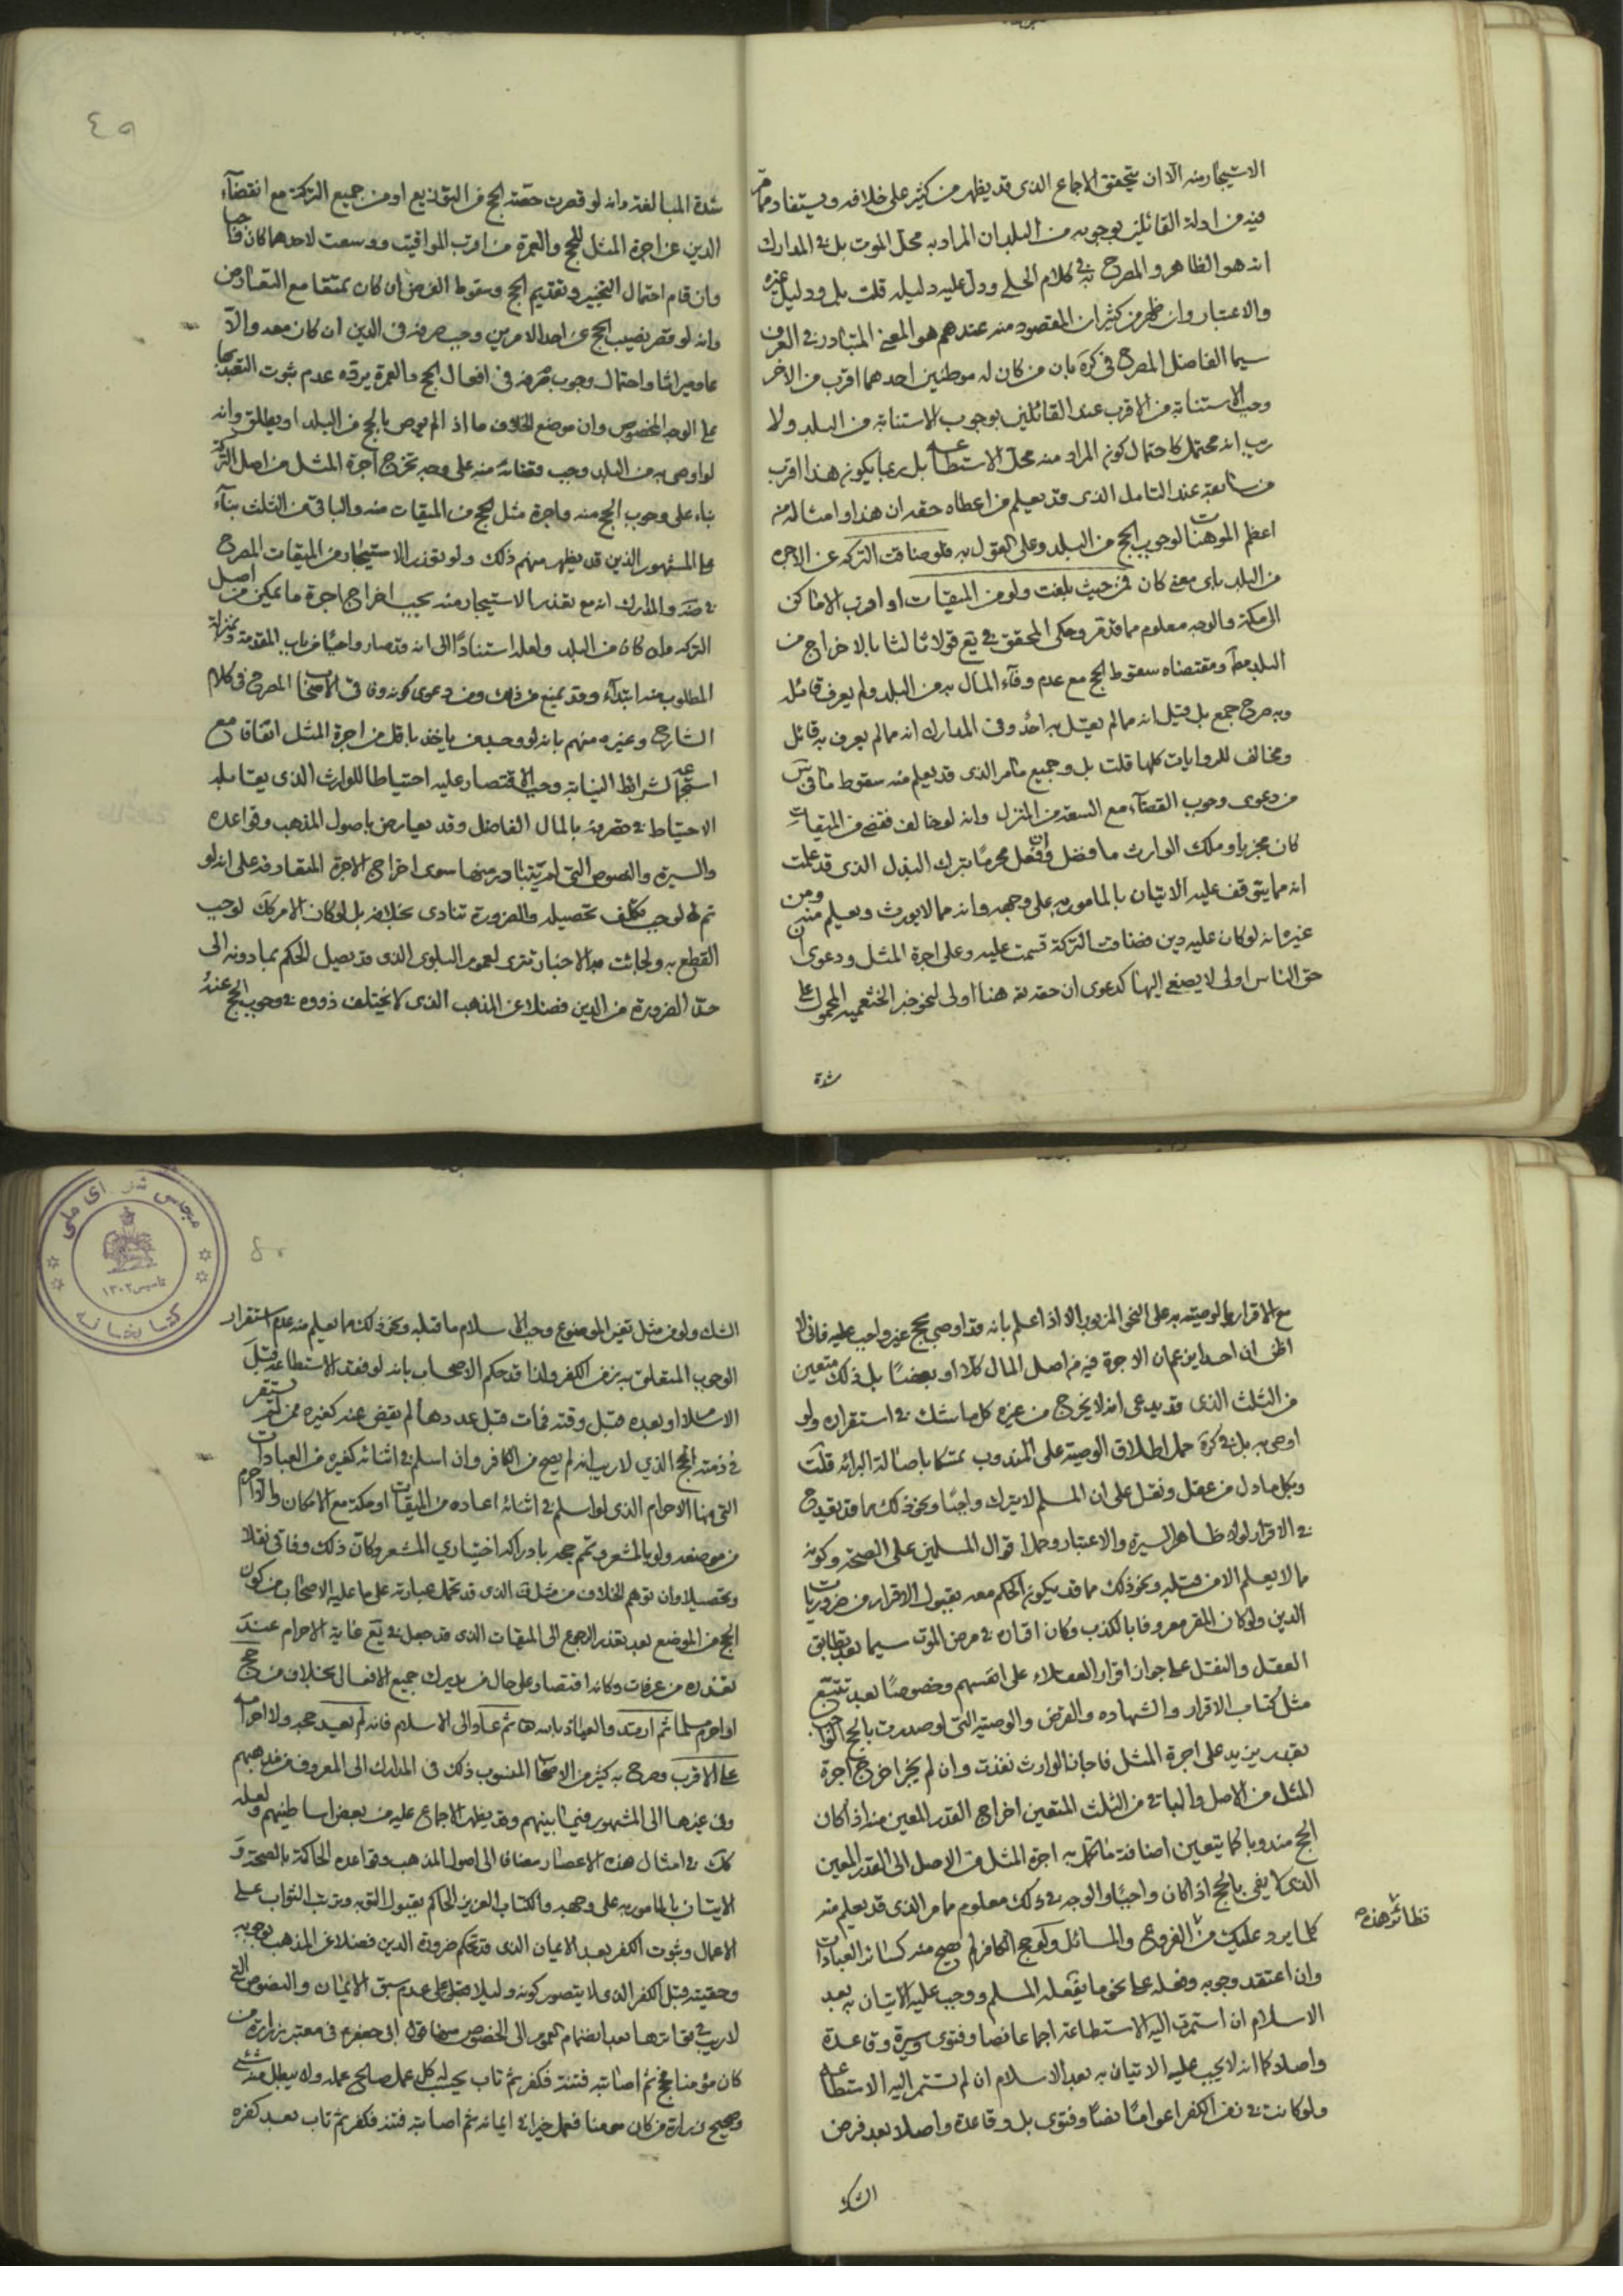 الاستيجار منه الا ان يتحقق الاجماع الذى قد يظهر من كثير على خلافه ويستفاد مما مر
فيه من ادلة القائلين بوجوبه من البلد ان المراد به محل الموت بل فى المدارك
انه هو الظاهر والمصرح به فى كلام الحلى ودل عليه دليله قلت بل ودليل غيره
والاعتبار وان ظهر من كثير ان المقصود منه عندهم هو المعنى المتبادر فى العرف
سيما الفاضل المصرح فى كره بان من كان له موطنين احدهما اقرب من الاخر
وجب الاستنابة من الاقرب عند القائلين بوجوب الاستنابة من البلد ولا
ريب انه محتمل كاحتمال كون المراد منه محل الاستطاعة بل ربما يكون هذا اقرب
من سابقه عند التامل الذى قد يعلم من اعطاه حقه ان هذا وامثاله من
اعظم الموهنات لوجوب الحج من البلد وعلى القول به فلو ضاقت التركه عن الاجره
من البلد باى معنى كان فمن حيث بلغت ولو من الميقات او اقرب الاماكن
الى مكة والوجه معلوم مما قد مر وحكى المحقق فى يع قولا ثالثا بالاخراج من
البلد مط ومقتضاه سقوط الحج مع عدم وفاء المال به من البلد ولم يعرف قائله
وبه صرح جمع بل قيل انه مما لم يقل به احد وفى المدارك انه مما لم يعرف به قائل
ومخالف للروايات كلها قلت بل وجميع ما مر الذى قد يعلم منه سقوط ما فى س
من دعوى وجوب القضاء مع السعة من المنزل وانه لو خالف فقضى من الميقات
كان مجزيا وملك الوارث ما فضل وان فعل محرما بترك البذل الذى قد علمت
انه مما يتوقف عليه الاتيان بالمامور به على وجهه وانه مما لا يورث ويعلم منه ومن
غيره انه لو كان عليه دين وضاقت التركة قسمت عليه وعلى اجرة المثل ودعوى ان
حق الناس اولى لا يصغى اليها كدعوى ان حقه تعه هنا اولى لنحو خبر الخثعميه المحمول على
شدة
٤٩
شدة المبالغة وانه لو قصرت حصة الحج من التوزيع او من جميع التركة مع انقضاء
الدين عن اجرة المثل للحج والعمرة من اقرب المواقيت ووسعت لاحدهما كان
وان قام احتمال التخيير وتقديم الحج وسقوط الفرض ان كان تمتعا مع التعارض
وانه لو قصر نصيب الحج عن احد الامرين وجب صرفه فى الدين ان كان معه والا
عاد ميراثا واحتمال وجوب صرفه فى افعال الحج والعمرة يرده عدم ثبوت التعبد بها
على الوجه المخصوص وان موضع الخلاف ما اذا لم يوص بالحج من البلد او يطلق وانه
لو اوصى به من البلد وجب قضائه منه على وجه تخرج اجرة المثل من اصل التركة
بناء على وجوب الحج منه واجرة مثل الحج من الميقات منه والباقى من الثلث بناء
على المشهور الذين قد يظهر منهم ذلك ولو تعذر الاستيجار من الميقات المصرح
فى ضه والمدارك انه مع تعذر الاستيجار منه يجب اخراج اجرة ما يمكن من اصل
التركه وان كان من البلد ولعله استنادا الى انه قد صار واجبا من باب المقدمة وبمنزلة
المطلوب منه ابتداء وقد يمنع من ذلك ومن دعوى كونه وفاقى الاصحاب المصرح فى كلام
الشارح وغيره منهم بانه لو وجد من ياخذ باقل من اجرة المثل اتفاقا مع
استجماعه لشرائط النيابة وجب الاقتصار عليه احتياطا للوارث الذى يقابله
الاحتياط فى صرفه بالمال الفاضل وقد يعارض باصول المذهب وقواعده
والسيرة والنصوص التى لم يتبادر منها سوى اخراج الاجرة المتعارفه على انه لو
تم لهم لوجب تكلف تحصيله والضرورة تنادى بخلافه بل لو كان الامر كك لوجب
القطع به ولجائت به الاخبار تترى لعموم البلوى الذى قد يصيل الحكم بما دونه الى
حد الضرورة من الدين فضلا عن المذهب الذى لا يختلف ذووه فى وجوب الحج عنه
مع الاقرار بالوصيته به على النحو المزبور الا اذا علم بانه قد اوصى بحج غير واجب عليه فانى لا
اظن ان احدا يزعم ان الاجرة فيه من اصل المال كلا او بعضا بل ذلك متعين
من الثلث الذى قد يدعى انه لا يخرج من غيره كل ما شك فى استقراره ولو
اوصى به بل فى كره حمل اطلاق الوصية على المندوب تمسكا باصالة البرائه قلت
وبكل ما دل من عقل ونقل على ان المسلم لا يترك واجبا ونحو ذلك مما قد يقدح
فى الاقرار لولا ظاهر السيرة والاعتبار وحمل اقوال المسلمين على الصحة وكونه
مما لا يعلم الا من قبله ونحو ذلك مما قد يكون الحكم معه بقبول الاقرار من ضروريات
الدين ولو كان المقر معروفا بالكذب وكان اقراره فى مرض الموت سيما بعد تطابق
العقل والنقل على جواز اقرار العقلاء على انفسهم وخصوصا بعد تتبع
مثل كتاب الاقرار والشهاده والقرض والوصيه التى لو صدرت بالحج
بقدر يزيد على اجرة المثل فاجاز الوارث نفذت وان لم يجز اخرج اجرة
المثل من الاصل والباقى من الثلث المتعين اخراج القدر المعين منه اذا كان
الحج مندوبا كما يتعين اضافة ما تكمل به اجرة المثل من الاصل الى القدر المعين
الذى لا يفى بالحج اذا كان واجبا والوجه فى ذلك معلوم مما مر الذى قد يعلم منه
كلما يرد عليك من الفروع والمسائل ولو حج الكافر لم يصح منه كسائر العبادات
نظائر هذه
وان اعتقد وجوبه وفعله على نحو ما يفعله المسلم ووجب عليه الاتيان به بعد
الاسلام ان استمرت اليه الاستطاعة اجماعا نصا وفتوى وسيرة وقاعدة
واصلا كما انه لا يجب عليه الاتيان به بعد الاسلام ان لم تستمر اليه الاستطاعة
ولو كانت فى زمن الكفر اعواما نصا وفتوى بل وقاعدة واصلا بعد فرض
الشك
مجلس شورای ملی
تاسیس ۱۳۰۲
کتابخانه
٥٠
الشك ولو من مثل تغير الموضوع وجب الاسلام ما قبله ونحو ذلك مما يعلم منه عدم استقرار
الوجوب المتعلق به زمن الكفر ولذا قد حكم الاصحاب بانه لو فقد الاستطاعه قبل
الاسلام او بعده قبل وقته فمات قبل عددها لم يقض عنه كغيره ممن لم يستقر
فى ذمته الحج الذي لا ريب انه لم يصح من الكافر وان اسلم فى اثنائه كغيره من العبادات
التى منها الاحرام الذى لو اسلم فى اثنائه اعاده من الميقات او مكة مع الامكان والا احرم
من موضعه ولو بالمشعر وتم حجه بادراكه اختياري المشعر وكان ذلك وفاقى نقلا
وتحصيلا وان توهم الخلاف من مثل ف الذى قد تحمل عبارته على ما عليه الاصحاب من كون
الحج من الموضع بعد تعذر الرجوع الى الميقات الذى قد جعل فى يع غاية الاحرام عند
تعذره من عرفات وكانه اقتصار على حال من يدرك جميع الافعال بخلاف من حج
او احرم مسلما ثم ارتد والعياذ بالله ثم عاد الى الاسلام فانه لم يعيد حجه ولا احرامه
على الاقرب وصرح به كثير من الاصحاب المنسوب ذلك فى المدارك الى المعروف من مذهبهم
وفى غيرها الى المشهور فيما بينهم وقد يظهر الاجماع عليه من بعض اساطينهم ولعله
كك فى امثال هذه الاعصار مضافا الى اصول المذهب وقواعده الحاكمة بالصحة و
الاتيان بالمامور به على وجهه والكتاب العزيز الحاكم بقبول التوبه وترتب الثواب على
الاعمال وثبوت الكفر بعد الايمان الذى قد تحكم ضرورة الدين فضلا عن المذهب بوجوبه
وحقيته قبل الكفر الذى لا يتصور كونه دليلا قبل على عدم سبق الايمان والنصوص التى
لا ريب فى تواترها بعد انضمام العموم الى الخصوص منها قول ابى جعفر ع فى معتبر زرارة من
كان مؤمنا فحج ثم اصابته فتنة فكفر ثم تاب يحسب له كل عمل صالح عمله ولا يبطل منه شئ
وصحيح زرارة من كان مومنا فعمل خيرا فى ايمانه ثم اصابته فتنة فكفر ثم تاب بعد كفره